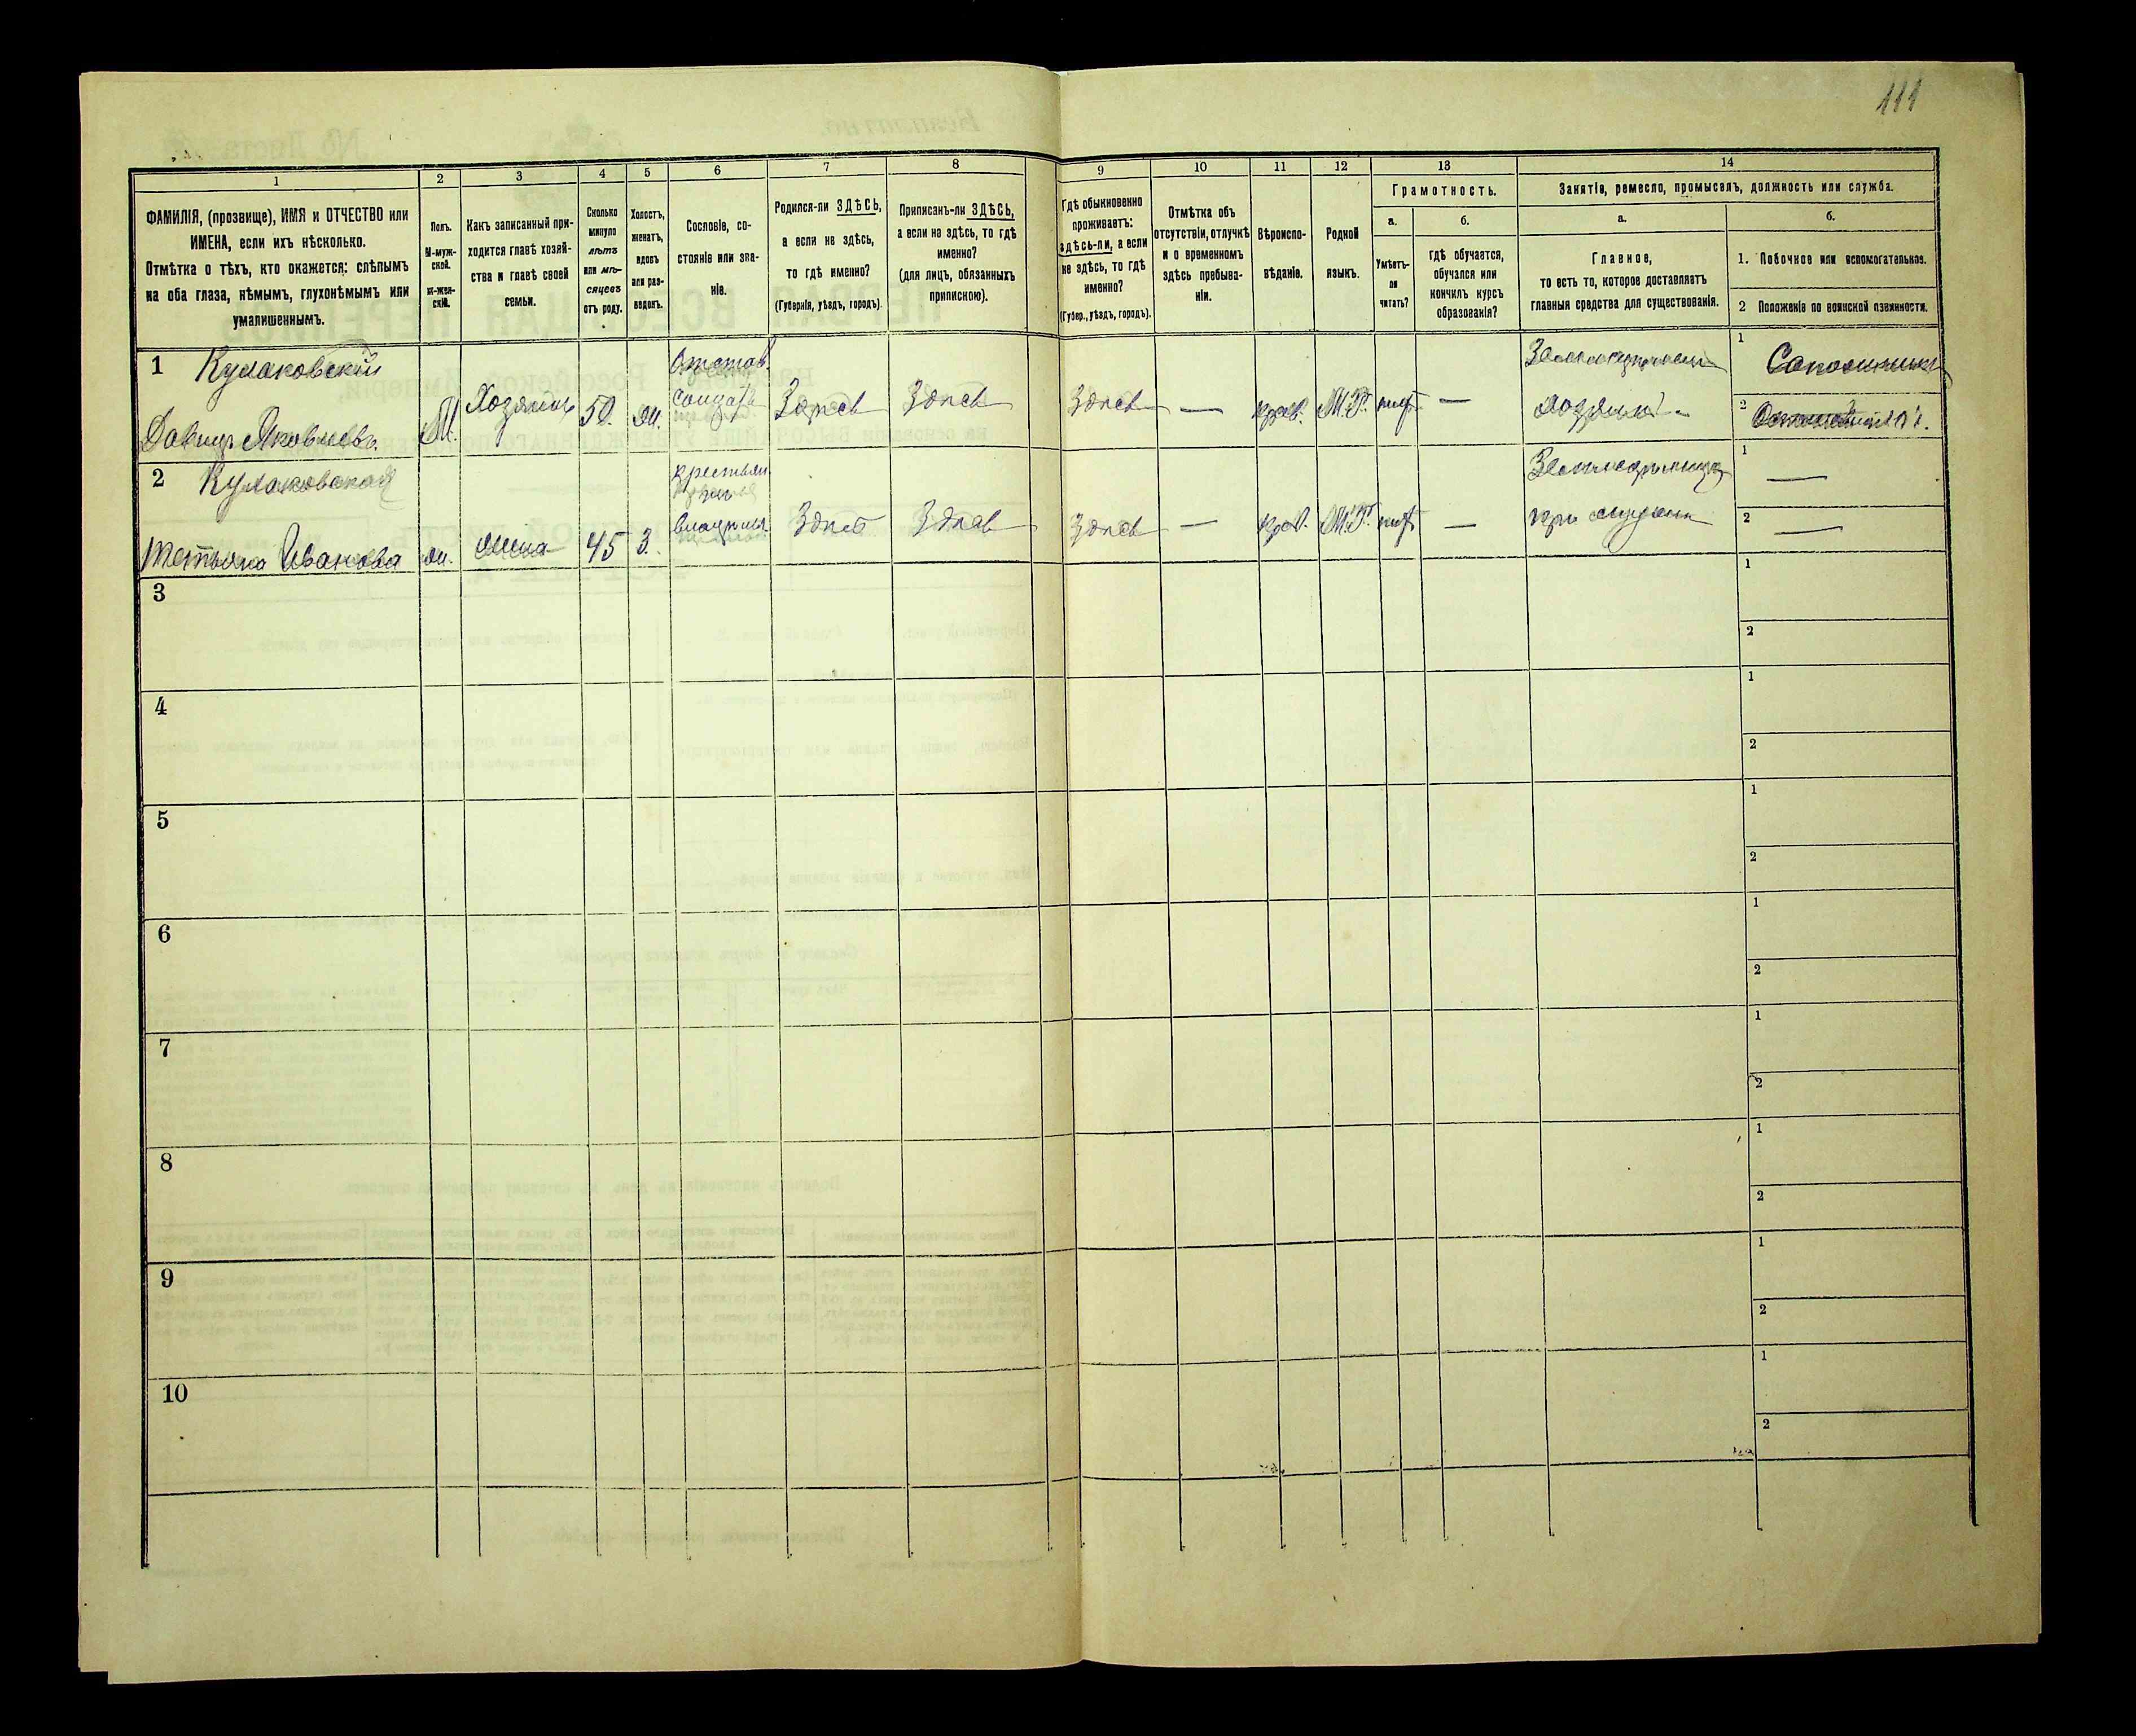 111
1
2
3
4
5
6
7
8
9
10
11
12
13
14
ФАМИЛІЯ, (прозвище), ИМЯ и ОТЧЕСТВО или
ИМЕНА, если ихъ нѣсколько.
Отмѣтка о тѣхъ, кто окажется: слѣпымъ
на оба глаза, нѣмымъ, глухонѣмымъ или
умалишеннымъ.
Полъ.
М-муж-
ской.
ж-жен-
скій.
Какъ записанный при-
ходится главѣ хозяй-
ства и главѣ своей
семьи.
Сколько
минуло
лѣтъ
или мѣ-
сяцевъ
отъ роду.
Холостъ,
женатъ,
вдовъ
или раз-
веденъ.
Сословіе, со-
стояніе или зва-
ніе.
Родился-ли ЗДѢСЬ,
а если не здѣсь,
то гдѣ именно?
(Губернія, уѣздъ, городъ).
Приписанъ-ли ЗДѢСЬ,
а если не здѣсь, то гдѣ
именно?
(для лицъ, обязанныхъ
припискою).
Гдѣ обыкновенно
проживаетъ:
здѣсь-ли, а если
не здѣсь, то гдѣ
именно?
(Губер., уѣздъ, городъ).
Отмѣтка объ
отсутствіи, отлучкѣ
и о временномъ
здѣсь пребыва-
ніи.
Вѣроиспо-
вѣданіе.
Родной
языкъ.
Грамотность.
а.
Умѣетъ-
ли
читать?
б.
гдѣ обучается,
обучался или
кончилъ курсъ
образованія?
Занятіе, ремесло, промыселъ, должность или служба.
а.
Главное,
то есть то, которое доставляетъ
главныя средства для существованія.
б.
1. Побочное или вспомогательное.
2 Положеніе по воинской повинности.
1 Кулаковскій
Давидъ Яковлевъ
М.
Хозяинъ
50.
ж.
Отстав.
солдатъ
Здѣсь
Здѣсь
Здѣсь
—
прав.
М.Р.
нѣт
—
хозяинъ
1
Сапожникъ
2
2 Кулаковская
Тетьяна Иванова
ж.
жена
45
З.
крестьян
Здѣсь
Здѣсь
Здѣсь
—
прав.
М.Р.
нѣт
—
при мужѣ
1 —
2 —
3
1
2
4
1
2
5
1
2
6
1
2
7
1
2
8
1
2
9
1
2
10
1
2